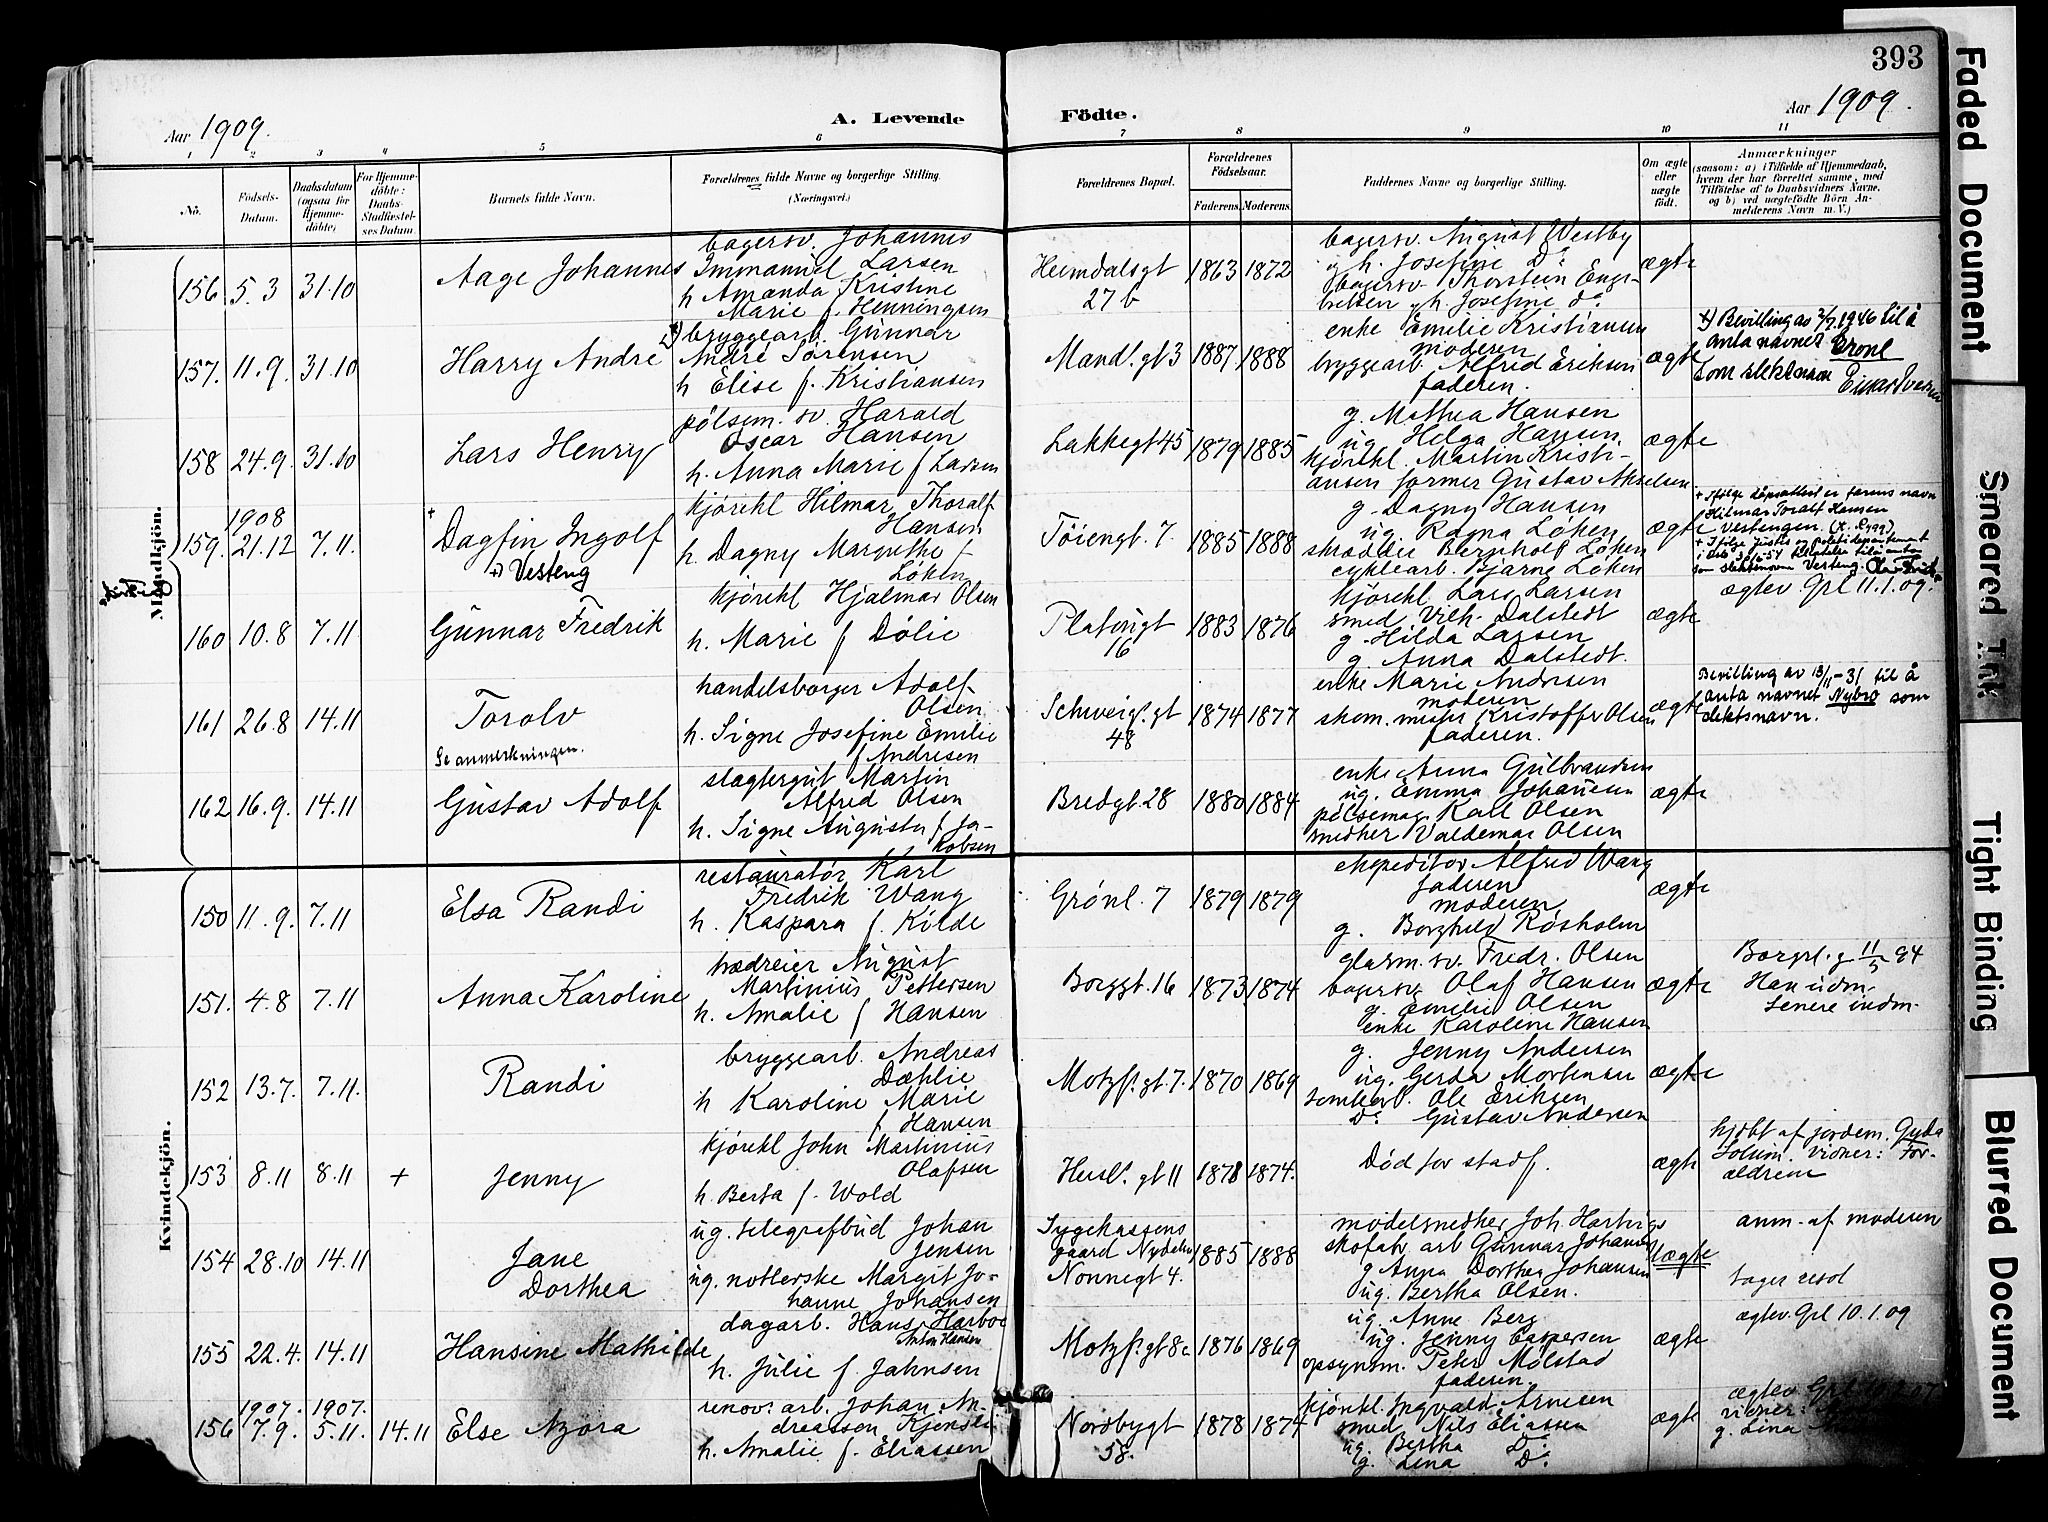 393
Aar 1909.
A. Levende Födte.
Aar 1909.
1 2 3 4 5 6 7 8 9 10 11
Nö.
Födsels-Datum.
Daabsdatum (ogsaa for Hjemmedöbte)
For Hjemmedöbte: Daabs-Stadfæstelses Datum.
Barnets fulde Navn.
Forældrenes fulde Navne og borgerlige Stilling. (Næringsvei.)
Forældrenes Bopæl.
Forældrenes Födselsaar.
Faderens. Moderens.
Faddernes Navne og borgerlige Stilling.
Om ægte eller uægte födt.
Anmærkninger
(saasom: a) i Tilfælde af Hjemmedaab, hvem der har forrettet samme, med Tilföielse af to Daabsvidners Navne, og b) ved uægtefödte Börn Anmelderens Navn m. V.)
Mandkjön.
156 5.3 31.10
Aage Johannes
bagersv. Johannes
Immanuel Larsen
h Amanda Kristine
Marie f. Henningsen
Heimdalsgt
27 b
1863 1872
bagersv. August Westby
g h. Josefine Do
bagersv. Thorstein Eng-
bretsen g h. Josefine do
ægte
157. 11.9. 31.10
Harry Andre
bryggearb. Gunnar
André Sørensen
h Elise f. Kristiansen
Mandl.gt 3
1887 1888
enke Emilie Kristiansen
moderen
bryggearb. Alfred Eriksen
faderen.
ægte
+) Bevilling av 2/7.1946 til å
anta navnet Grone
som slektsnavn Einar Iversen
158 24.9. 31.10
Lars Henry
pølsem. sv. Harald
Oscar Hansen
h. Anna Marie f Larsen
Lakkegt 45
1879 1885
g. Mathea Hansen
ug. Helga Hansen
kjørekl. Martin Kristi-
ansen former Gustav Akselsen
ægte
159. 1908 21.12 7.11.
Dagfin Ingolf
+) Vesteng
kjørekl Hilmar Thoralf
Hansen
h. Dagny Margrethe f
Løken
Tøiengt. 7.
1885 1888
g. Dagny Hansen
ug. Ragna Løken
skrædder Bergholt Løken
cyklearb. Bjarne Løken
ægte
+ Ifølge dåpsattest er farens navn
Hilmar Toralf Hansen
Vestengen.
+ Ifølge Justis og politidepartement
som slektsnavn Vesteng.
ægtev. Grl 11.1.09.
160 10.8 7.11
Gunnar Fredrik
kjørekl Hjalmar Olsen
h. Marie f Dølie
Platougt
16
1883 1876
kjørekl Lars Larsen
smed Vilh. Dalstedt
g. Hilda Larsen
g. Anna Dalstedt.
ægte
161 26.8 14.11
Torolv
Se anmerkningen.
handelsborger Adolf
Olsen
h. Signe Josefine Emilie
f Andresen
Schweig.gt
48
1874 1877
enke Marie Andresen
moderen
skom. mester Kristoffer Olsen
faderen.
ægte
Bevilling av 13/11-31 til å
anta navnet Nybro som
slektsnavn.
162 16.9. 14.11
Gustav Adolf
slagtergut Martin
Alfred Olsen
h. Signe Augusta f Ja-
kobsen
Bredgt. 28
1880 1884
enke Anna Gulbrandsen
ug. Emma Johansen
pølsemag. Karl Olsen
snedker Valdemar Olsen
ægte
Kvindekjön.
150 11.9. 7.11
Elsa Randi
restauratør Karl
Fredrik Wang
h. Kaspara f. Kilde
Grønl. 7
1879 1879
ekspeditør Alfred Wang
faderen
moderen
g. Borghild Røsholm
ægte
151. 4.8 7.11
Anna Karoline
hædreier August
Martinius Pettersen
h. Amalie f Hansen
Borggt. 16
1873 1874
glasm. sv. Fredr. Olsen
bagersv. Olaf Hansen
g. Emilie Olsen
enke Karoline Hansen
ægte
Borgvl. g 11/5 94
Han udm.
senere indm.
152 13.7. 7.11.
Randi
bryggearb. Andreas
Dæhlie
h Karoline Marie
f Hansen
Motzf.gt 7.
1870 1869
g. Jenny Andersen
ug. Gerda Mortensen
tomtearb. Ole Eriksen
Do Gustav Andersen
ægte
153 8.11 8.11 +
Jenny
kjørekl John Martinius
Olafsen
h. Berta f. Wold
Husl.gt 11
1878 1874.
Død før stadf.
ægte
hjdbt af jordem. Gyda
Solum. vidner: For-
ældrene
154 28.10 14.11
Jane
Dorthea
ug. telegrafbud Johan
Jensen
ug. notterske Margit Jo-
hanne Johansen
Sygekassens
gaard Nydalen
Nonnegt 4.
1885 1888
modelsnedker Joh. Hartvigs
skofabr. arb Gunnar Johansen
g Anna Dorthea Johansen
ug. Bertha Olsen.
Uægte
anm. af moderen
tager resol
155 22.4. 14.11
Hansine Mathilde
dagarb. Hans Harboe
Anton Hansen
h. Julie f Jahnsen
Motzf.gt 8c
1876 1869
ug. Anne Berg
ug. Jenny Caspersen
opsynsm. Peter Mølstad
faderen.
ægte
ægtev. Grl 10.1.09
156 1907. 7.9. 1907. 5.11. 14.11
Else Azora
renov. arb. Johan An-
dreassen Kjensli
h. Amalie f. Eliassen
Nordbygt
58.
1878 1874
kjørekl. Ingvald Arnesen
smed Nils Eliassen
ug. Bertha Do
g. Lina Do
ægte
ægtev. Grl
vidner:
g. Lina
Faded Document
Smeared Ink
Tight Binding
Blurred Document